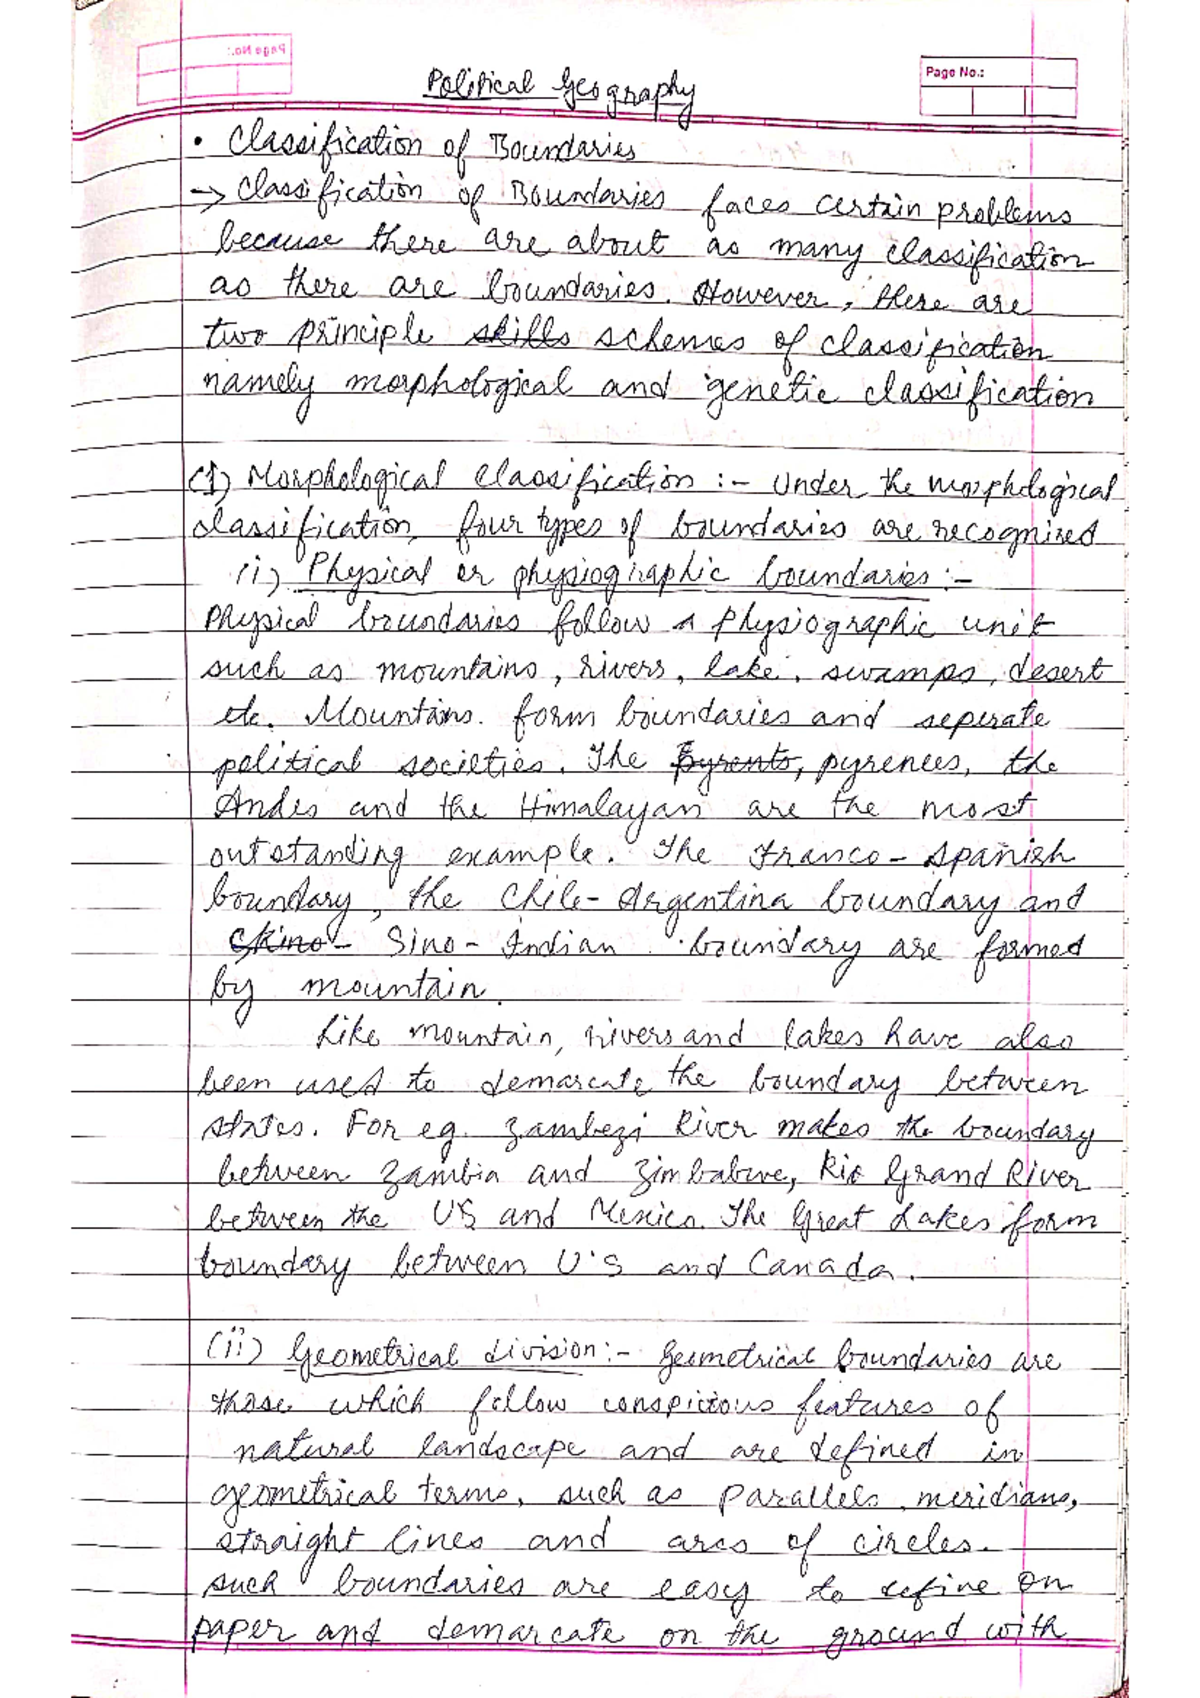 Page No.:
Page No.:
Political Geography
• Classification of Boundaries
→ Classification of Boundaries faces certain problems
because there are about as many classification
as there are boundaries. However, there are
two principle skills schemes of classification
namely morphological and genetic classification
(1) Morphological Classification :- Under the morphological
classification, four types of boundaries are recognised
(i) Physical or physiographic boundaries :-
Physical boundaries follow a physiographic unit
such as mountains, rivers, lake, swamps, desert
etc. Mountains. form boundaries and seperate
political societies. The Pyrents, pyrenees, the
Andes and the Himalayan are the most
outstanding example. The Franco-spanish
boundary, the Chile-Argentina boundary and
Skino- Sino-Indian boundary are formed
by mountain.
Like mountain, rivers and lakes have also
been used to demarcate the boundary between
states. For eg. Zambezi River makes the boundary
between Zambia and Zimbabwe, Rio Grand River
between the US and Mexico. The Great Lakes form
boundary between U's and Canada.
(ii) Geometrical division:- Geometrical boundaries are
those which follow conspicious features of
natural landscape and are defined in
geometrical terms, such as parallels, meridians,
straight lines and arcs of circles.
such boundaries are easy to define on
paper and demarcate on the ground with